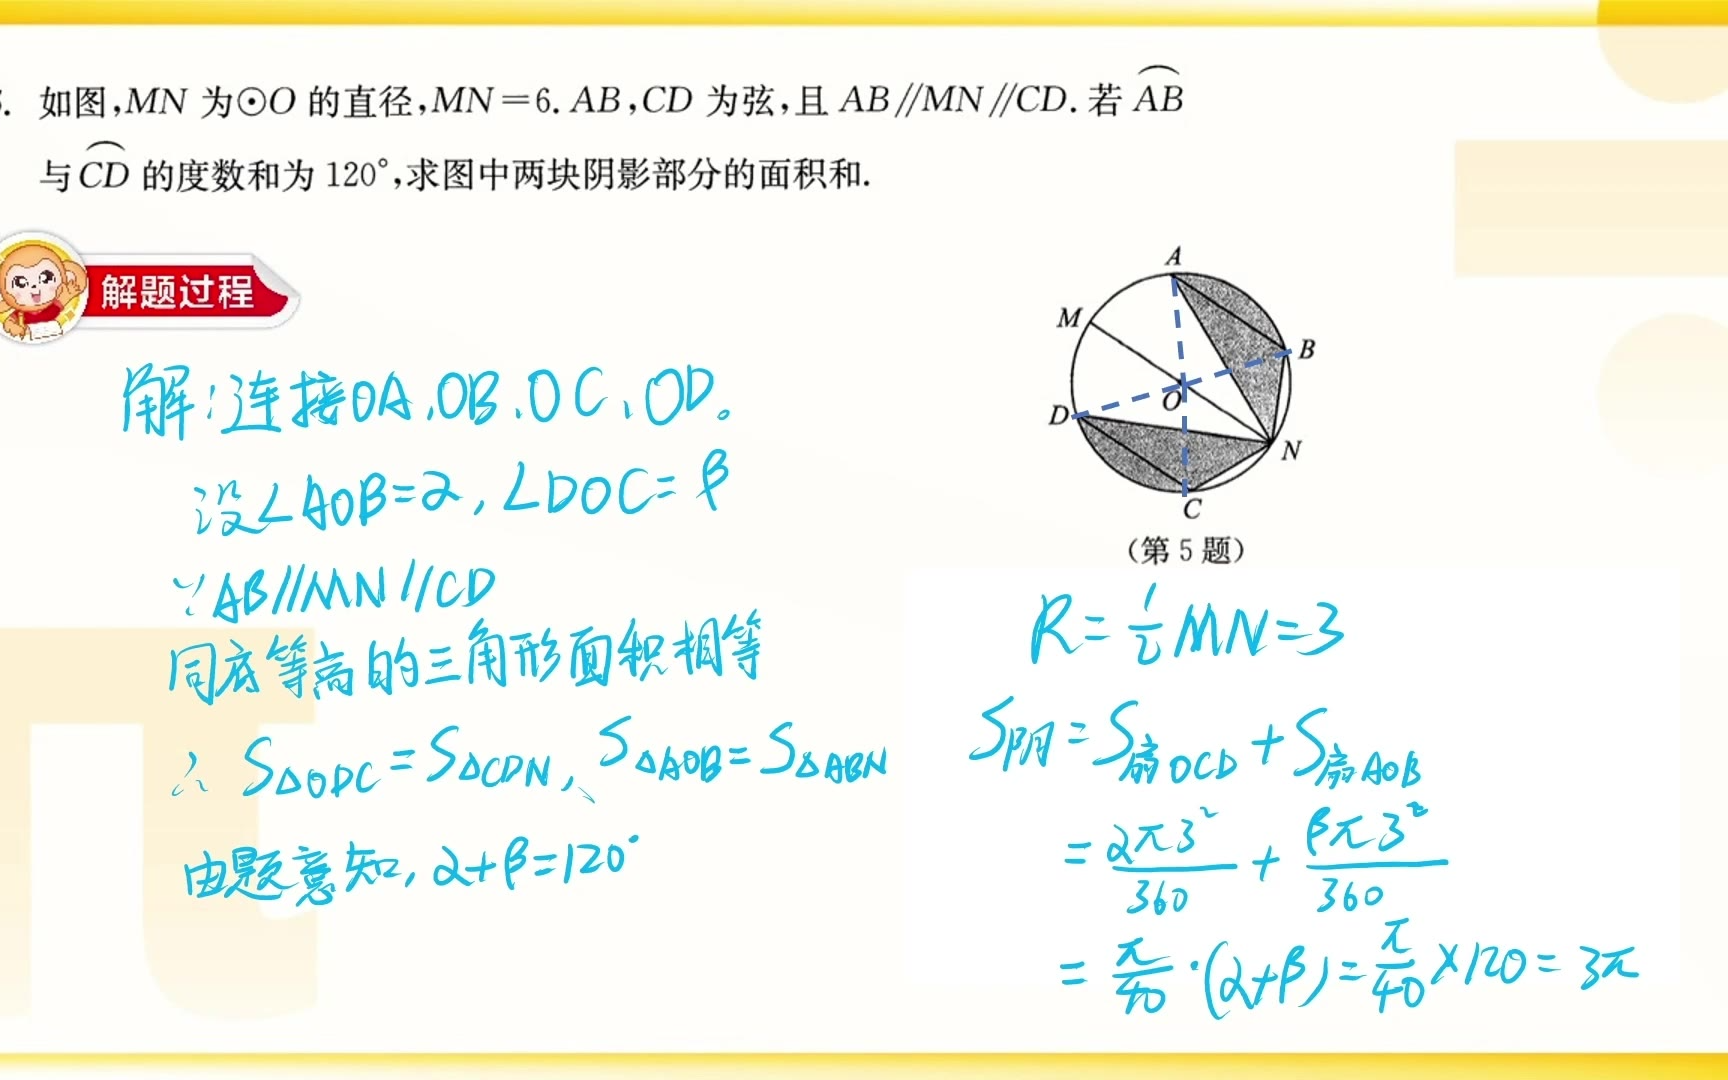 . 如图,MN 为⊙O 的直径,MN=6. AB,CD 为弦,且 AB∥MN∥CD. 若 AB
与 CD 的度数和为 120°,求图中两块阴影部分的面积和.
解题过程
A
M
B
O
D
N
C
(第 5 题)
解:连接OA、OB、OC、OD。
设∠AOB=α,∠DOC=β
∵AB∥MN∥CD
同底等高的三角形面积相等
∴ S△ODC=S△CDN、S△AOB=S△ABN
由题意知,α+β=120°
R=1/2MN=3
S阴=S扇OCD+S扇AOB
=απ3²/360+βπ3²/360
=π/40·(α+β)=π/40×120=3π